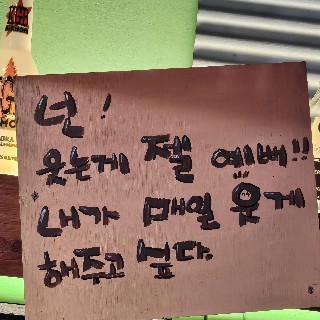 넌!
웃는게 젤 예뻐!!
내가 매일 웃게
해주고 싶다.